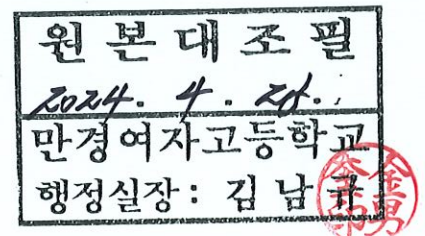 원본대조필
2024. 4. 28.
만경여자고등학교
행정실장: 김남규